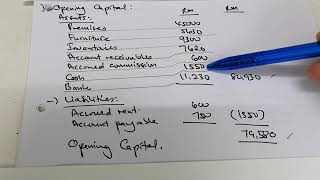 Opening Capital: RM RM
Assets:
Premises 45000
Furniture 5650
Inventories 9300
Account receivables 7620
Accrued commission 600
Cash 1550
Bank 11,230 80,930
(-) Liabilities:
Accrued rent 600
Account payable 750 (1350)
Opening Capital. 79,580